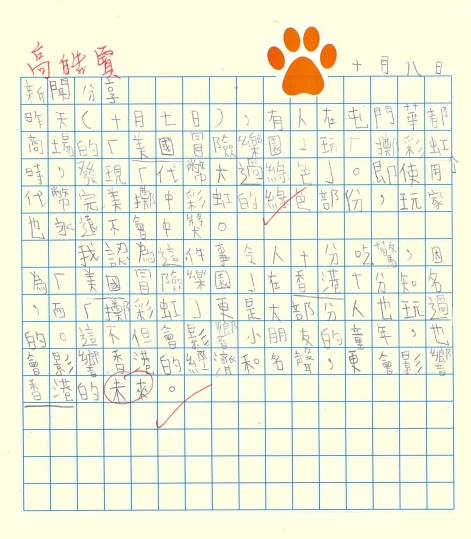 高皓賢
十月八日
新聞分享
昨天(十月七日),有人在屯門華都
商場的「美國冒險樂園」玩「擲彩虹」
時,發現「代幣大過綠色」。即使用
代幣完美擲中彩虹的綠色部份,玩家
也永遠不會中獎。
我認為這件事令人十分吃驚,因
為「美國冒險樂園」在香港十分知名
,而「擲彩虹」更是大部分人也玩過
的。這不但會影響小朋友的童年,也
會影響香港的經濟和名聲,更會影響
香港的未來。